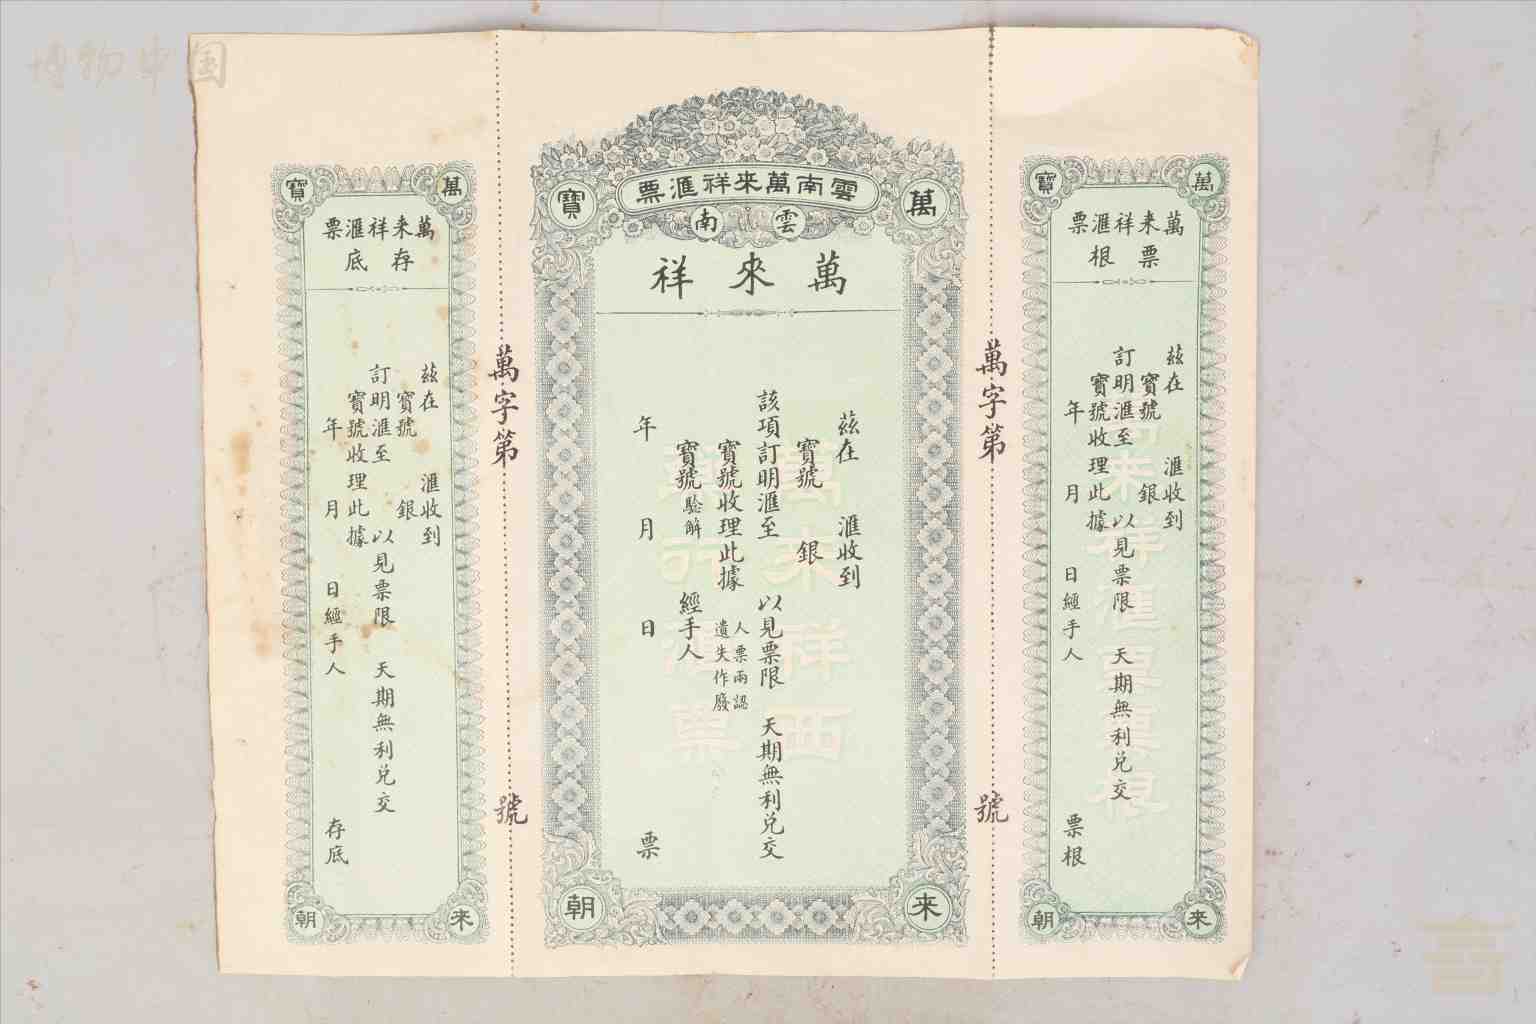 博物中国
萬 寶
萬來祥滙票
票根
茲在 滙收到
寶號 銀
訂明滙至 以見票限 天期無利兑交
寶號收理此據
年 月 日經手人 票根
來 朝
萬字第 號
萬 寶
雲南萬來祥滙票
雲南
萬來祥
茲在 滙收到
寶號 銀
該項訂明滙至 以見票限 天期無利兑交
寶號收理此據 人票兩認
遺失作廢
寶號驗觧 經手人
年 月 日 票
來 朝
萬字第 號
萬 寶
萬來祥滙票
存底
茲在 滙收到
寶號 銀
訂明滙至 以見票限 天期無利兑交
寶號收理此據
年 月 日經手人 存底
來 朝